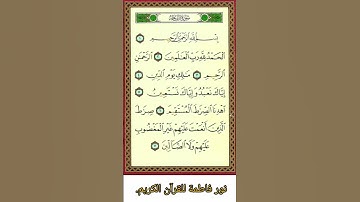 سورة الفاتحة
بِسْمِ اللَّهِ الرَّحْمَٰنِ الرَّحِيمِ ١
الْحَمْدُ لِلَّهِ رَبِّ الْعَالَمِينَ ٢ الرَّحْمَٰنِ
الرَّحِيمِ ٣ مَالِكِ يَوْمِ الدِّينِ ٤
إِيَّاكَ نَعْبُدُ وَإِيَّاكَ نَسْتَعِينُ ٥
اهْدِنَا الصِّرَاطَ الْمُسْتَقِيمَ ٦ صِرَاطَ
الَّذِينَ أَنْعَمْتَ عَلَيْهِمْ غَيْرِ الْمَغْضُوبِ
عَلَيْهِمْ وَلَا الضَّالِّينَ ٧
نور فاطمة للقرآن الكريم.